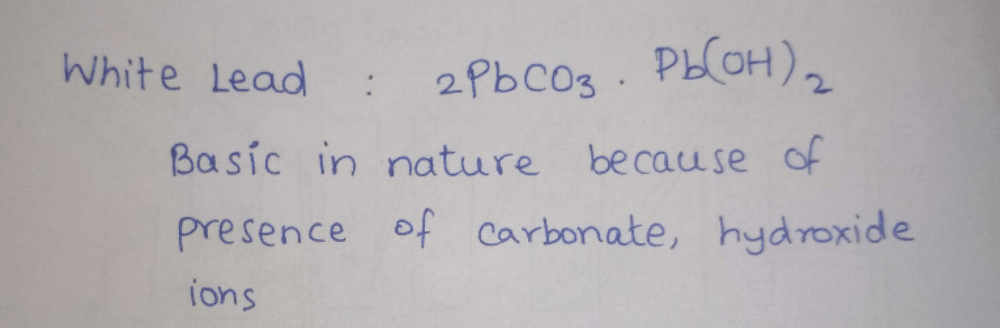 White Lead : 2PbCO3 . Pb(OH)2
Basic in nature because of
presence of carbonate, hydroxide
ions